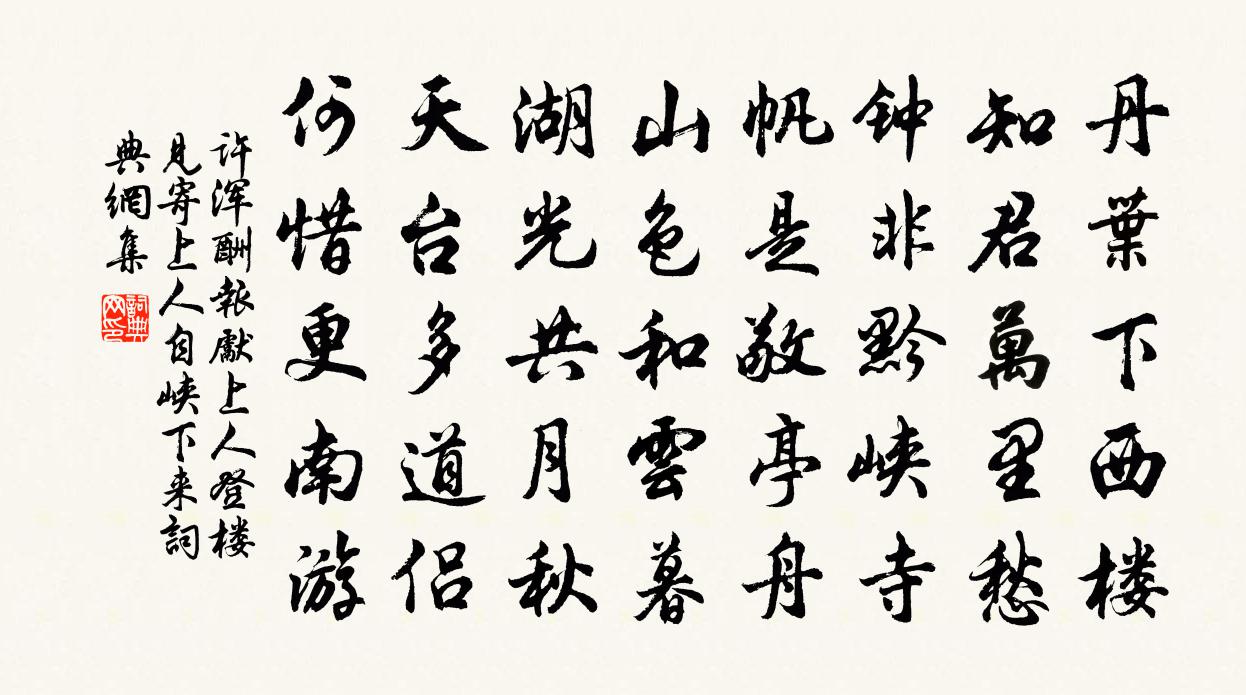 丹葉下西楼
知君萬里愁
钟非黔峡寺
帆是敬亭舟
山色和雲暮
湖光共月秋
天台多道侣
何惜更南游
许浑酬報獻上人登楼
見寄上人自峡下来詞
典網集
詞典
网印